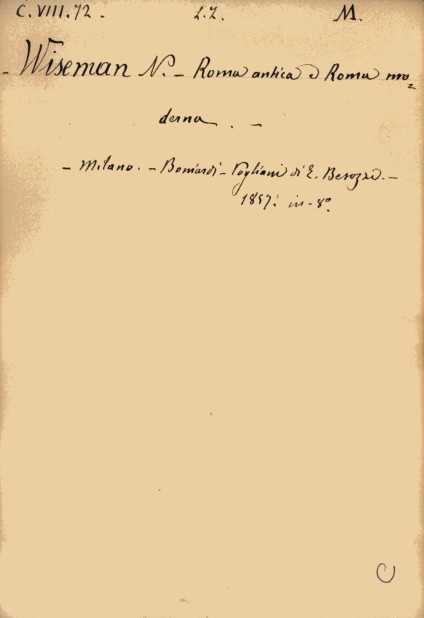 C. VIII. 72. L.Z. M.
- Wiseman N. - Roma antica e Roma mo=
derna. -
- Milano. - Boniardi - Pogliani di E. Besozzi. -
1857. in-8º.
C